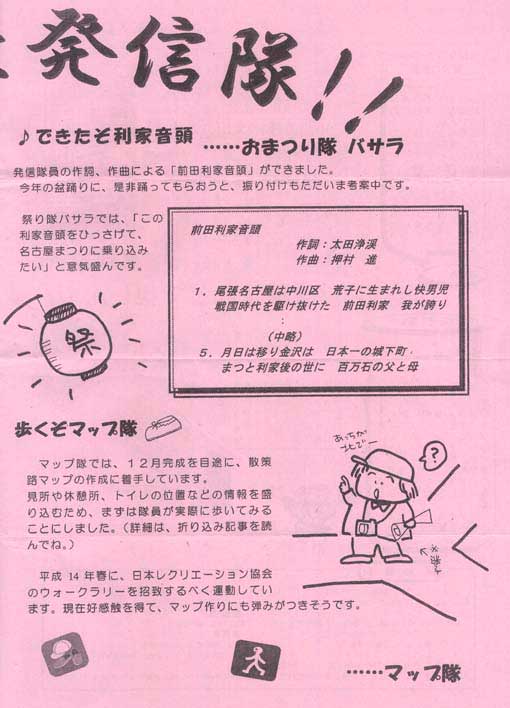 発信隊!!
♪できたぞ利家音頭 ……おまつり隊 バサラ
発信隊員の作詞、作曲による「前田利家音頭」ができました。
今年の盆踊りに、是非踊ってもらおうと、振り付けもただいま考案中です。
祭り隊バサラでは、「この
利家音頭をひっさげて、
名古屋まつりに乗り込み
たい」と意気盛んです。
祭
前田利家音頭
作詞：太田浄渓
作曲：押村　進
１．尾張名古屋は中川区　荒子に生まれし快男児
戦国時代を駆け抜けた　前田利家　我が誇り
：
（中略）
５．月日は移り金沢は　日本一の城下町
まつと利家後の世に　百万石の父と母
歩くぞマップ隊
マップ隊では、１２月完成を目途に、散策
路マップの作成に着手しています。
見所や休憩所、トイレの位置などの情報を盛
り込むため、まずは隊員が実際に歩いてみる
ことにしました。（詳細は、折り込み記事を読
んでね。）
あっちが
北でー
?
平成 14 年春に、日本レクリエーション協会
のウォークラリーを招致するべく運動してい
ます。現在好感触を得て、マップ作りにも弾みがつきそうです。
……マップ隊